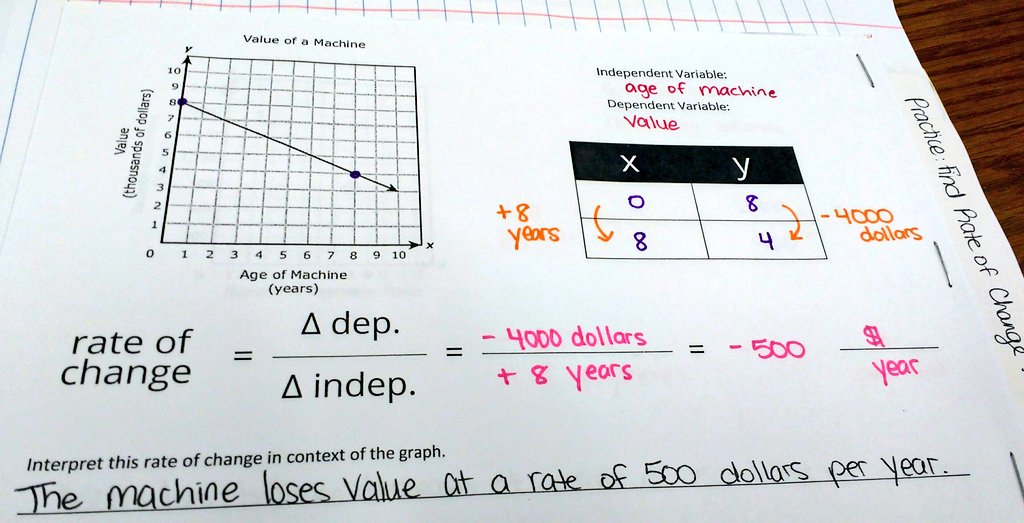 Value of a Machine
y
10
9
8
7
6
5
4
3
2
1
Value
(thousands of dollars)
0 1 2 3 4 5 6 7 8 9 10
x
Age of Machine
(years)
Independent Variable:
age of machine
Dependent Variable:
value
x y
0 8
8 4
+8
years
- 4000
dollars
Practice: find Rate of Change
rate of
change
=
Δ dep.
Δ indep.
=
- 4000 dollars
+ 8 years
= - 500
$
year
Interpret this rate of change in context of the graph.
The machine loses value at a rate of 500 dollars per year.